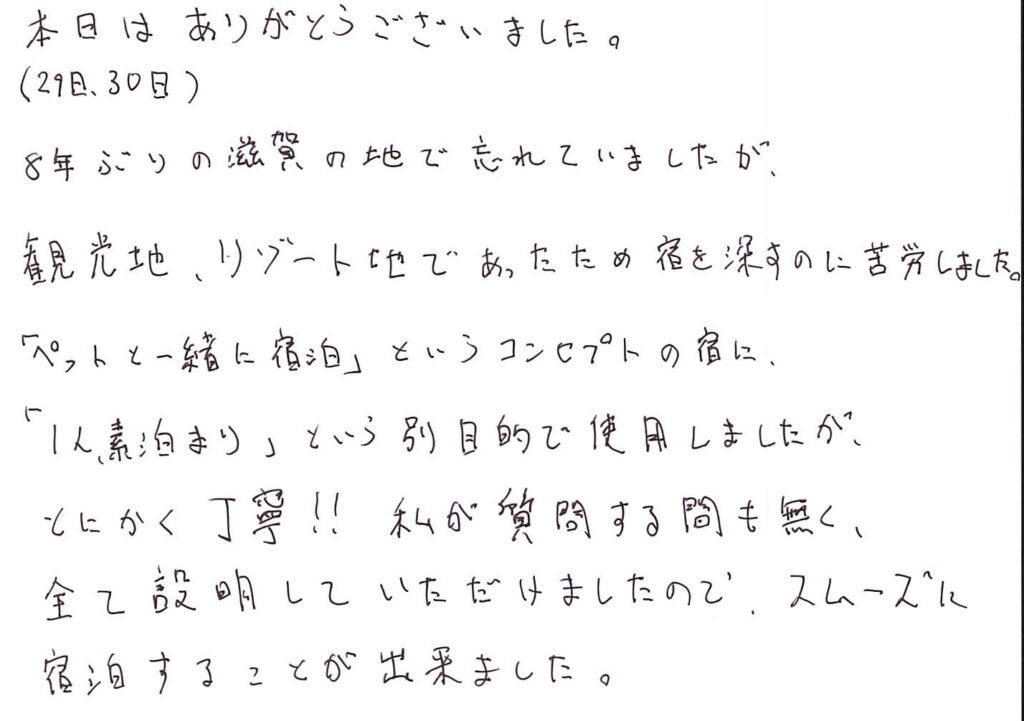 本日は ありがとうございました。
(29日、30日)
8年ぶりの滋賀の地で忘れていましたが、
観光地、リゾート地であったため宿を深すのに苦労しました。
「ペットと一緒に宿泊」というコンセプトの宿に、
「1人、素泊まり」という別目的で使用しましたが、
とにかく丁寧!! 私が質問する間も無く、
全て説明していただけましたので、スムーズに
宿泊することが出来ました。